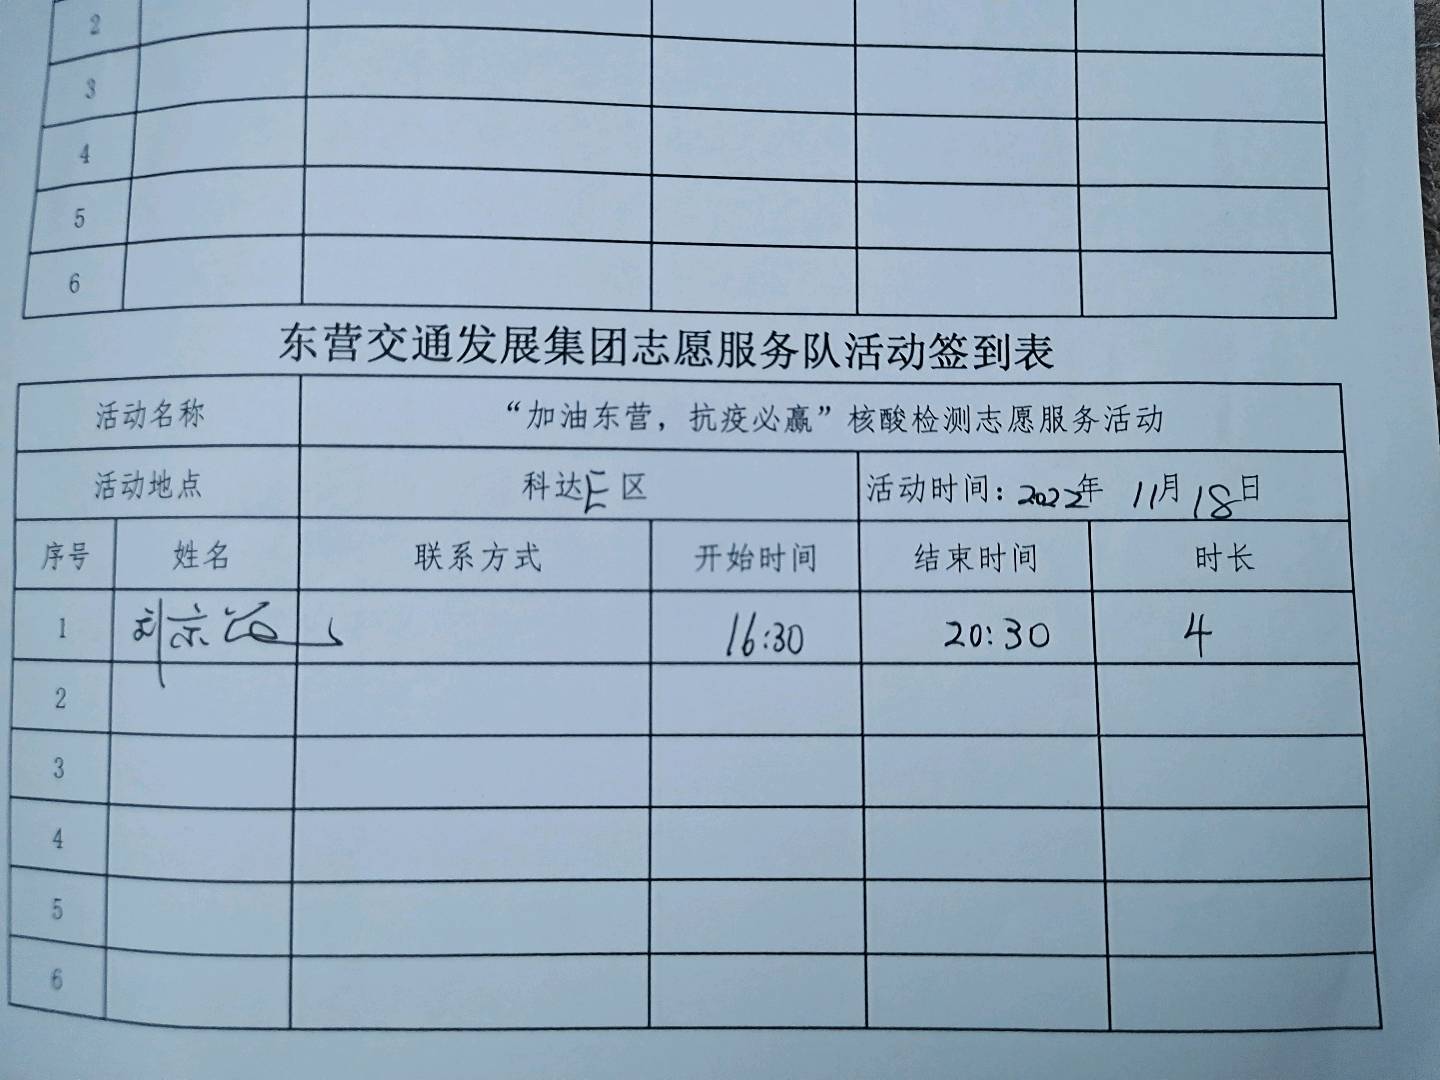 2
3
4
5
6
东营交通发展集团志愿服务队活动签到表
活动名称 “加油东营，抗疫必赢”核酸检测志愿服务活动
活动地点 科达E区 活动时间：2022年 11月18日
序号 姓名 联系方式 开始时间 结束时间 时长
1 刘京 16:30 20:30 4
2
3
4
5
6